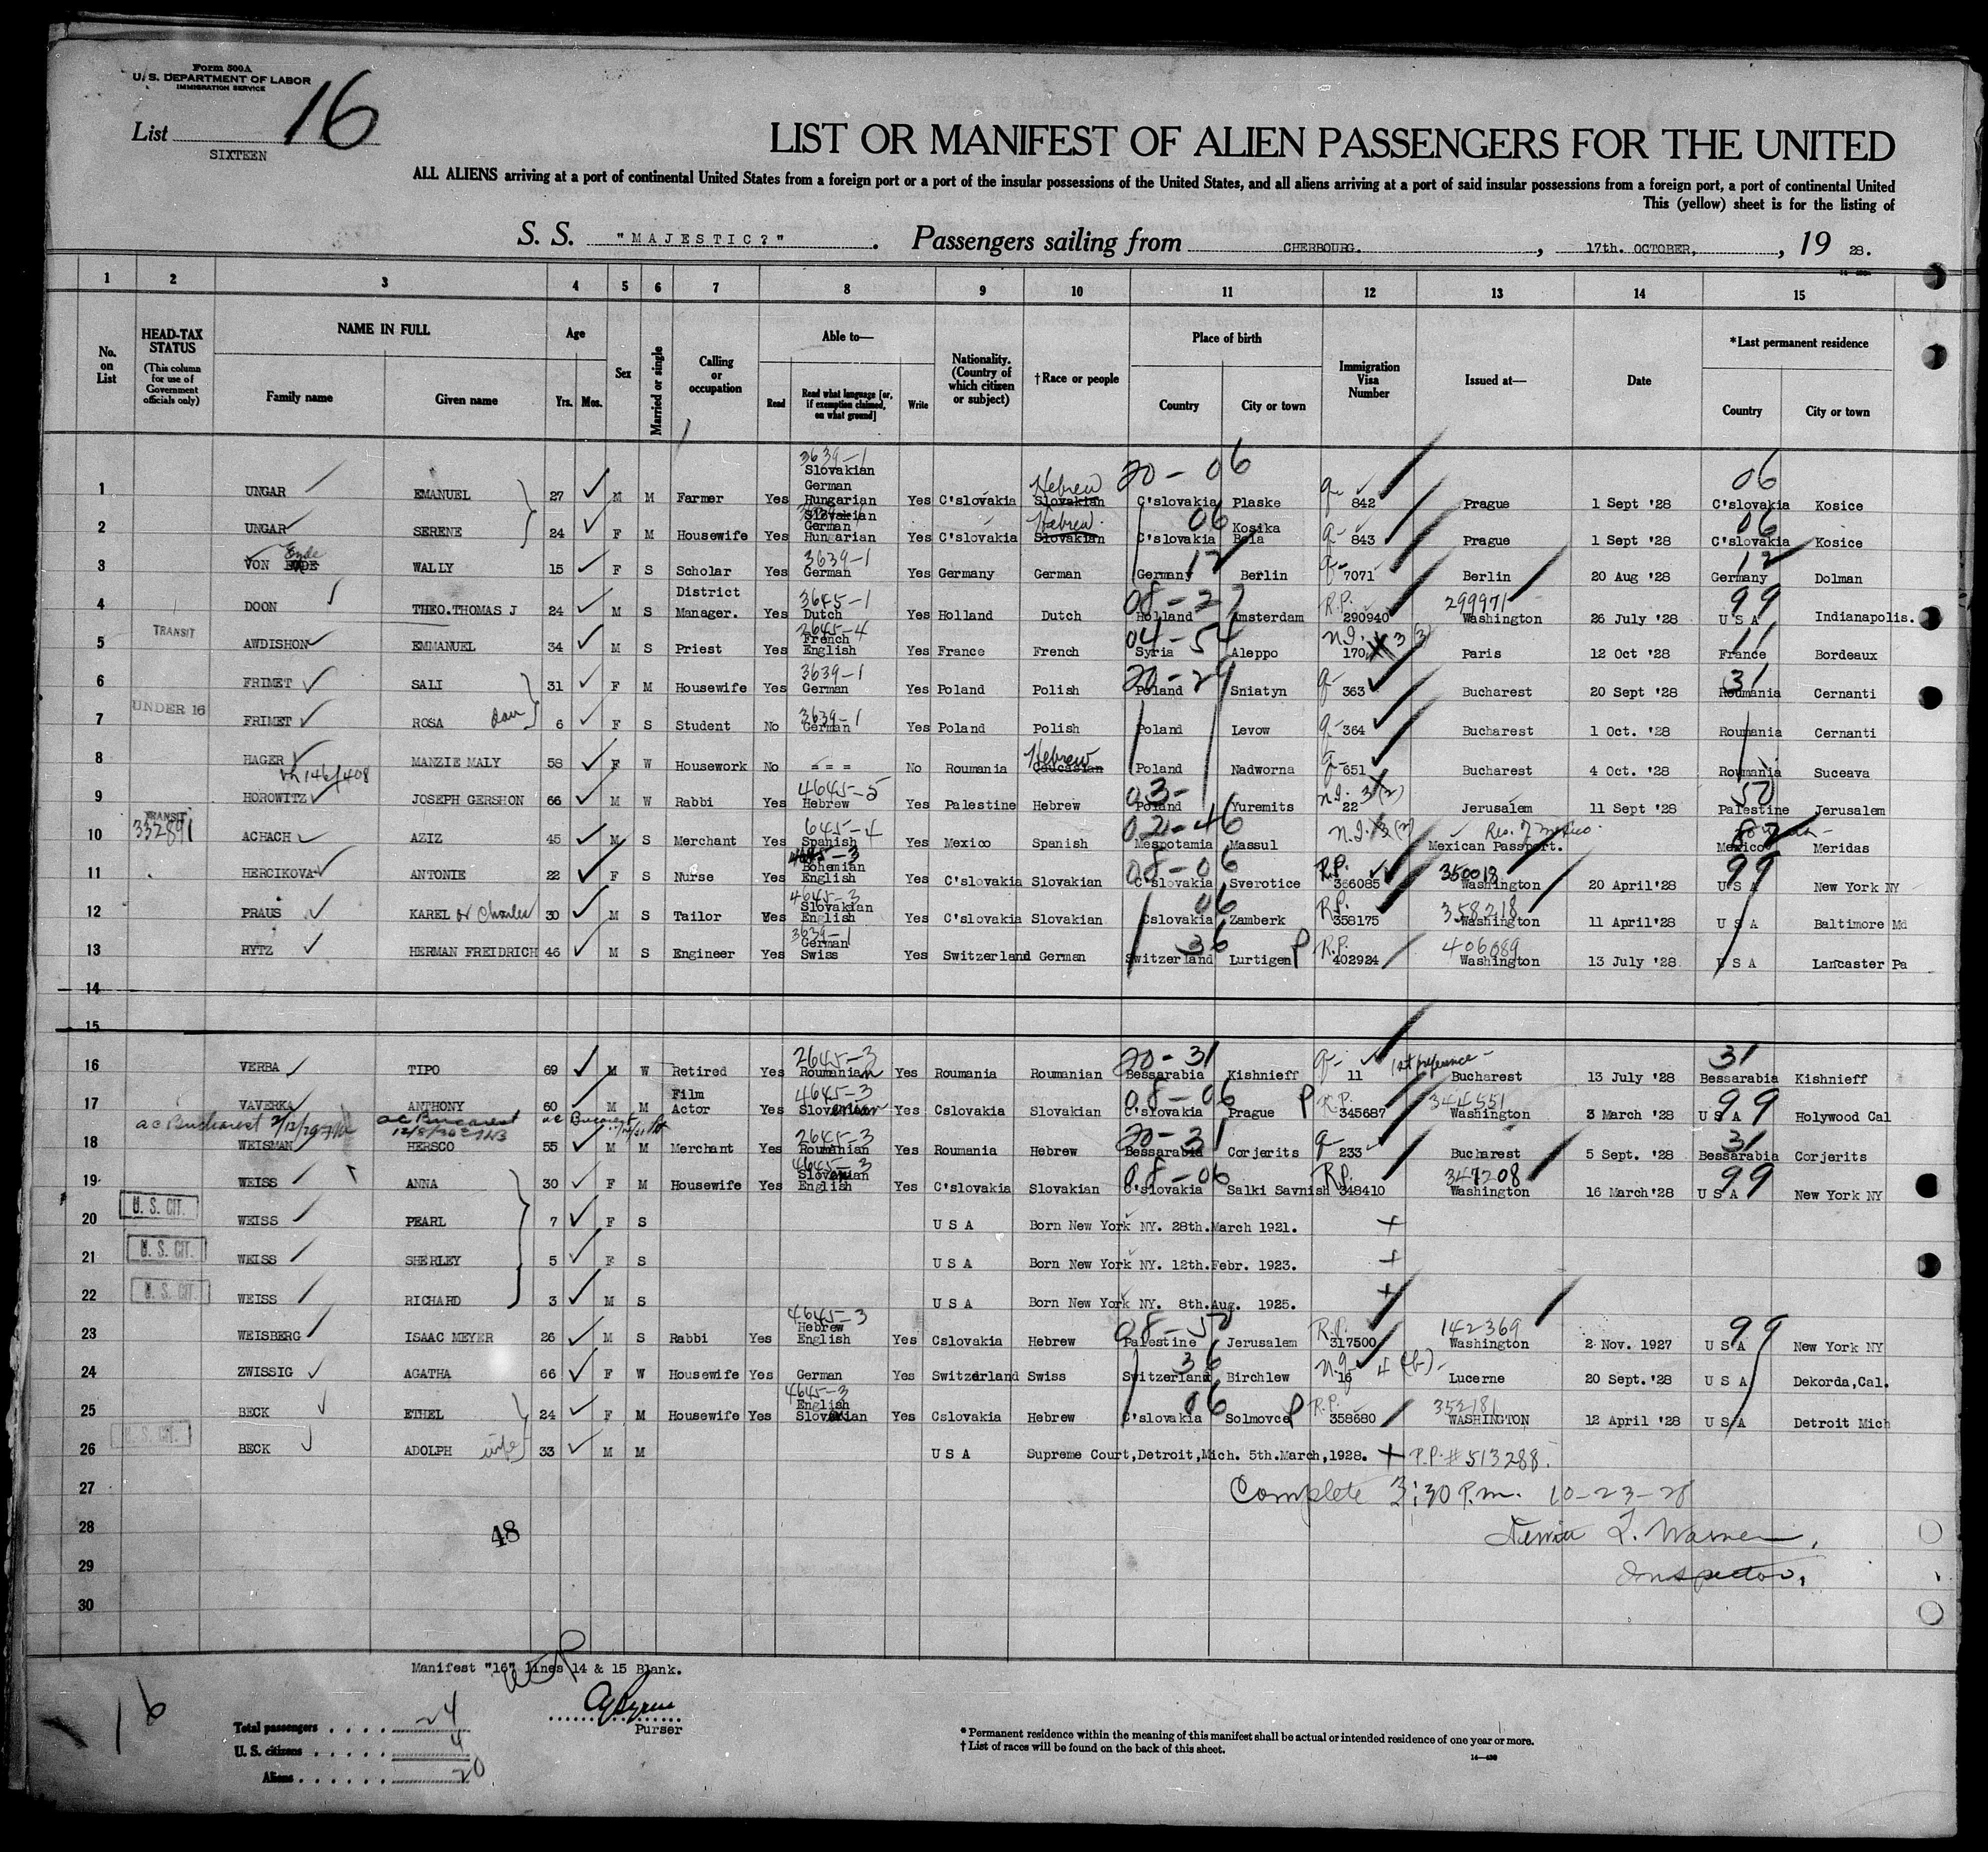 Form 500A
U. S. DEPARTMENT OF LABOR
IMMIGRATION SERVICE
List SIXTEEN 16
LIST OR MANIFEST OF ALIEN PASSENGERS FOR THE UNITED
ALL ALIENS arriving at a port of continental United States from a foreign port or a port of the insular possessions of the United States, and all aliens arriving at a port of said insular possessions from a foreign port, a port of continental United
This (yellow) sheet is for the listing of
S. S. "MAJESTIC?". Passengers sailing from CHERBOURG. , 17th. OCTOBER, , 19 28.
1 2 3 4 5 6 7 8 9 10 11 12 13 14 15
No. on List
HEAD-TAX STATUS (This column for use of Government officials only)
NAME IN FULL Family name Given name
Age Yrs. Mos.
Sex
Married or single
Calling or occupation
Able to— Read Read what language [or, if exemption claimed, on what ground] Write
Nationality. (Country of which citizen or subject)
†Race or people
Place of birth Country City or town
Immigration Visa Number
Issued at—
Date
*Last permanent residence Country City or town
1 UNGAR EMANUEL 27 M M Farmer Yes 3639-1 Slovakian German Hungarian Yes C'slovakia Hebrew Slovakian 20-06 C'slovakia Plaske Q- 842 Prague 1 Sept '28 06 C'slovakia Kosice
2 UNGAR SERENE 24 F M Housewife Yes Slovakian German Hungarian Yes C'slovakia Hebrew Slovakian 06 C'slovakia Kosika Bela Q- 843 Prague 1 Sept '28 06 C'slovakia Kosice
3 VON Ende WALLY 15 F S Scholar Yes 3639-1 German Yes Germany German 12 Germany Berlin Q- 7071 Berlin 20 Aug '28 12 Germany Dolman
4 DOON THEO.THOMAS J 24 M S District Manager. Yes 3645-1 Dutch Yes Holland Dutch 08-27 Holland Amsterdam R.P. 290940 299971 Washington 26 July '28 99 U S A Indianapolis.
TRANSIT
5 AWDISHON EMMANUEL 34 M S Priest Yes 2645-4 French English Yes France French 04-54 Syria Aleppo N.I. 170 3(3) Paris 12 Oct '28 11 France Bordeaux
6 FRIMET SALI 31 F M Housewife Yes 3639-1 German Yes Poland Polish 20-29 Poland Sniatyn Q- 363 Bucharest 20 Sept '28 31 Roumania Cernanti
UNDER 16
7 FRIMET ROSA dau 6 F S Student No 3639-1 German Yes Poland Polish Poland Levow Q- 364 Bucharest 1 Oct. '28 Roumania Cernanti
8 HAGER MANZIE MALY 58 F W Housework No = = = No Roumania Hebrew Caucasian Poland Nadworna Q- 651 Bucharest 4 Oct. '28 Roumania Suceava
9 HOROWITZ JOSEPH GERSHON 66 M W Rabbi Yes 4645-5 Hebrew Yes Palestine Hebrew 03- Poland Yuremits N.I. 22 3(2) Jerusalem 11 Sept '28 50 Palestine Jerusalem
TRANSIT 332891
10 ACHACH AZIZ 45 M S Merchant Yes 645-4 Spanish Yes Mexico Spanish 02-46 Mespotamia Massul N.I. 3(3) Res. of Mexico. Mexican Passport. Mexico Meridas
11 HERCIKOVA ANTONIE 22 F S Nurse Yes 4645-3 Bohemian English Yes C'slovakia Slovakian 08-06 C'slovakia Sverotice R.P. 366085 350018 Washington 20 April'28 99 U S A New York NY
12 PRAUS KAREL or Charles 30 M S Tailor Yes 4645-3 Slovakian English Yes C'slovakia Slovakian 06 Cslovakia Zamberk R.P. 358175 358218 Washington 11 April'28 U S A Baltimore Md
13 RYTZ HERMAN FREIDRICH 46 M S Engineer Yes 3639-1 German Swiss Yes Switzerland German 36 Switzerland Lurtigen P R.P. 402924 406089 Washington 13 July '28 U S A Lancaster Pa
14
15
16 VERBA TIPO 69 M W Retired Yes 2645-3 Roumanian Yes Roumania Roumanian 20-31 Bessarabia Kishnieff Q- 11 1st preference- Bucharest 13 July '28 31 Bessarabia Kishnieff
17 VAVERKA ANTHONY 60 M M Film Actor Yes 4645-3 Yes Cslovakia Slovakian 08-06 C'slovakia Prague P R.P. 345687 344551 Washington 3 March '28 99 U S A Holywood Cal
ac Bucharest 2/12/29 ac Bucarest 12/8/30 ac Bucarest
18 WEISMAN HERSCO 55 M M Merchant Yes 2645-3 Roumanian Yes Roumania Hebrew 20-31 Bessarabia Corjerits Q- 233 Bucharest 5 Sept. '28 31 Bessarabia Corjerits
19 WEISS ANNA 30 F M Housewife Yes 4645-3 Slovenian English Yes C'slovakia Slovakian 08-06 C'slovakia Salki Savnish R.P. 348410 347208 Washington 16 March'28 99 U S A New York NY
U. S. CIT.
20 WEISS PEARL 7 F S U S A Born New York NY. 28th.March 1921. +
U. S. CIT.
21 WEISS SHERLEY 5 F S U S A Born New York NY. 12th.Febr. 1923. +
U. S. CIT.
22 WEISS RICHARD 3 M S U S A Born New York NY. 8th.Aug. 1925. +
23 WEISBERG ISAAC MEYER 26 M S Rabbi Yes 4645-3 Hebrew English Yes Cslovakia Hebrew 08-50 Palestine Jerusalem R.P. 317500 142369 Washington 2 Nov. 1927 99 U S A New York NY
24 ZWISSIG AGATHA 66 F W Housewife Yes German Yes Switzerland Swiss 36 Switzerland Birchlew N.Q. 16 4(b)- Lucerne 20 Sept.'28 U S A Dekorda,Cal.
25 BECK ETHEL 24 F M Housewife Yes 4645-3 English Slovakian Yes Cslovakia Hebrew 06 C'slovakia Solmovce P R.P. 358680 352181 WASHINGTON 12 April '28 U S A Detroit Mich
U. S. CIT.
26 BECK ADOLPH wife 33 M M U S A Supreme Court,Detroit,Mich. 5th.March,1928. + P.P.#513288.
27 Complete 3:30 P.m. 10-23-28
28 48 L. Warner,
29 Inspector,
30
Manifest "16" lines 14 & 15 Blank.
16
Purser
Total passengers . . . . 24
U. S. citizens . . . . . 4
Aliens . . . . . . 20
* Permanent residence within the meaning of this manifest shall be actual or intended residence of one year or more.
† List of races will be found on the back of this sheet.